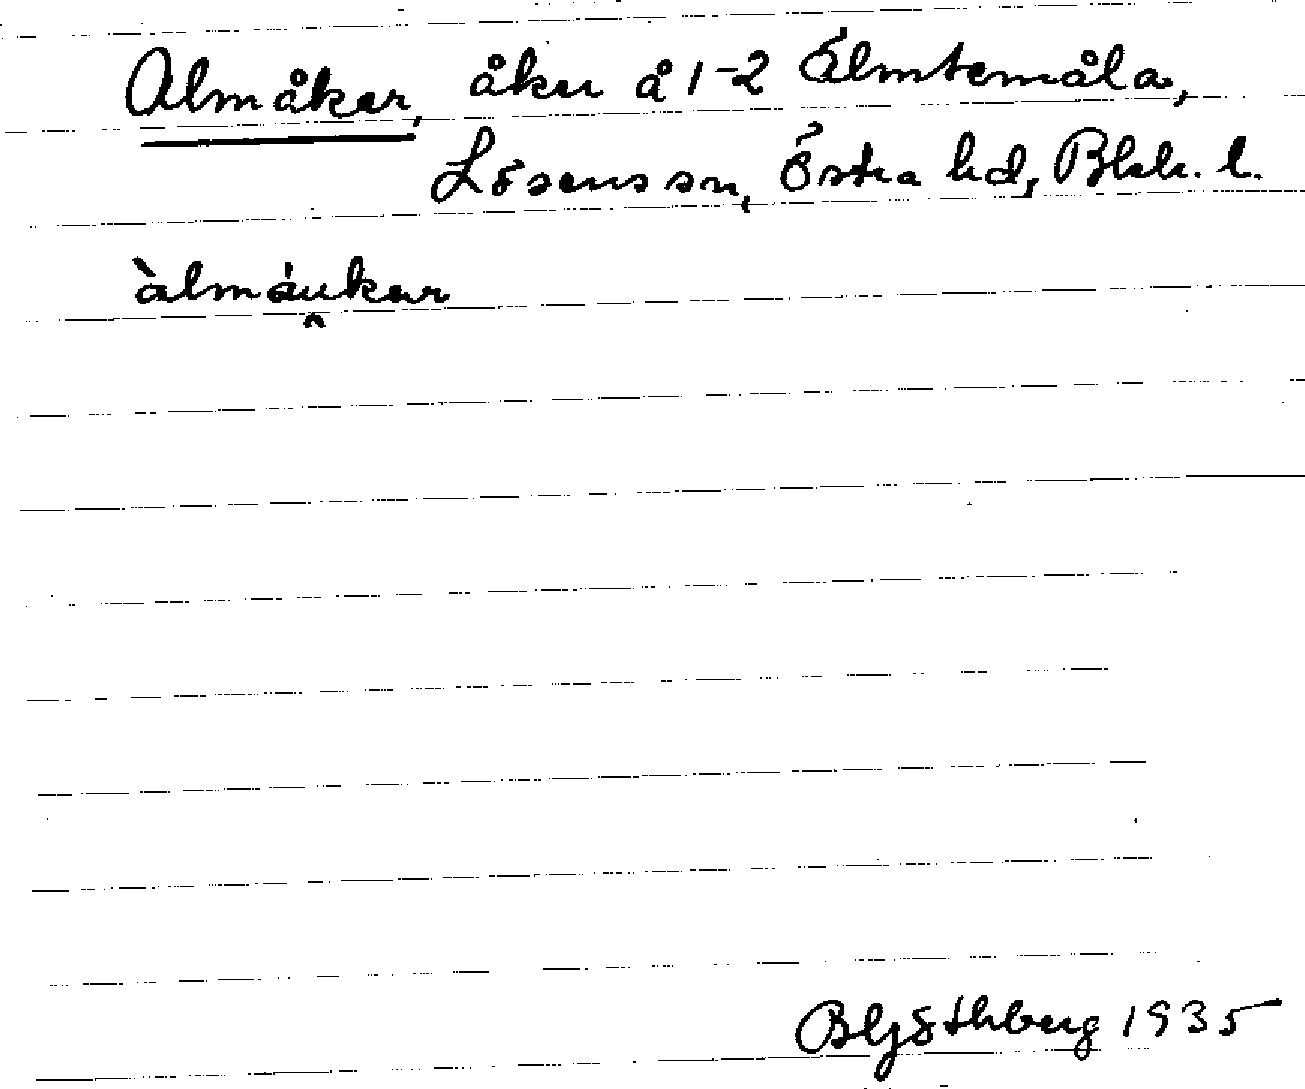 Almåker, åker å 1-2 Älmtemåla,
Lösens sn, Östra hd, Blek. l.
àlmáukar
1935